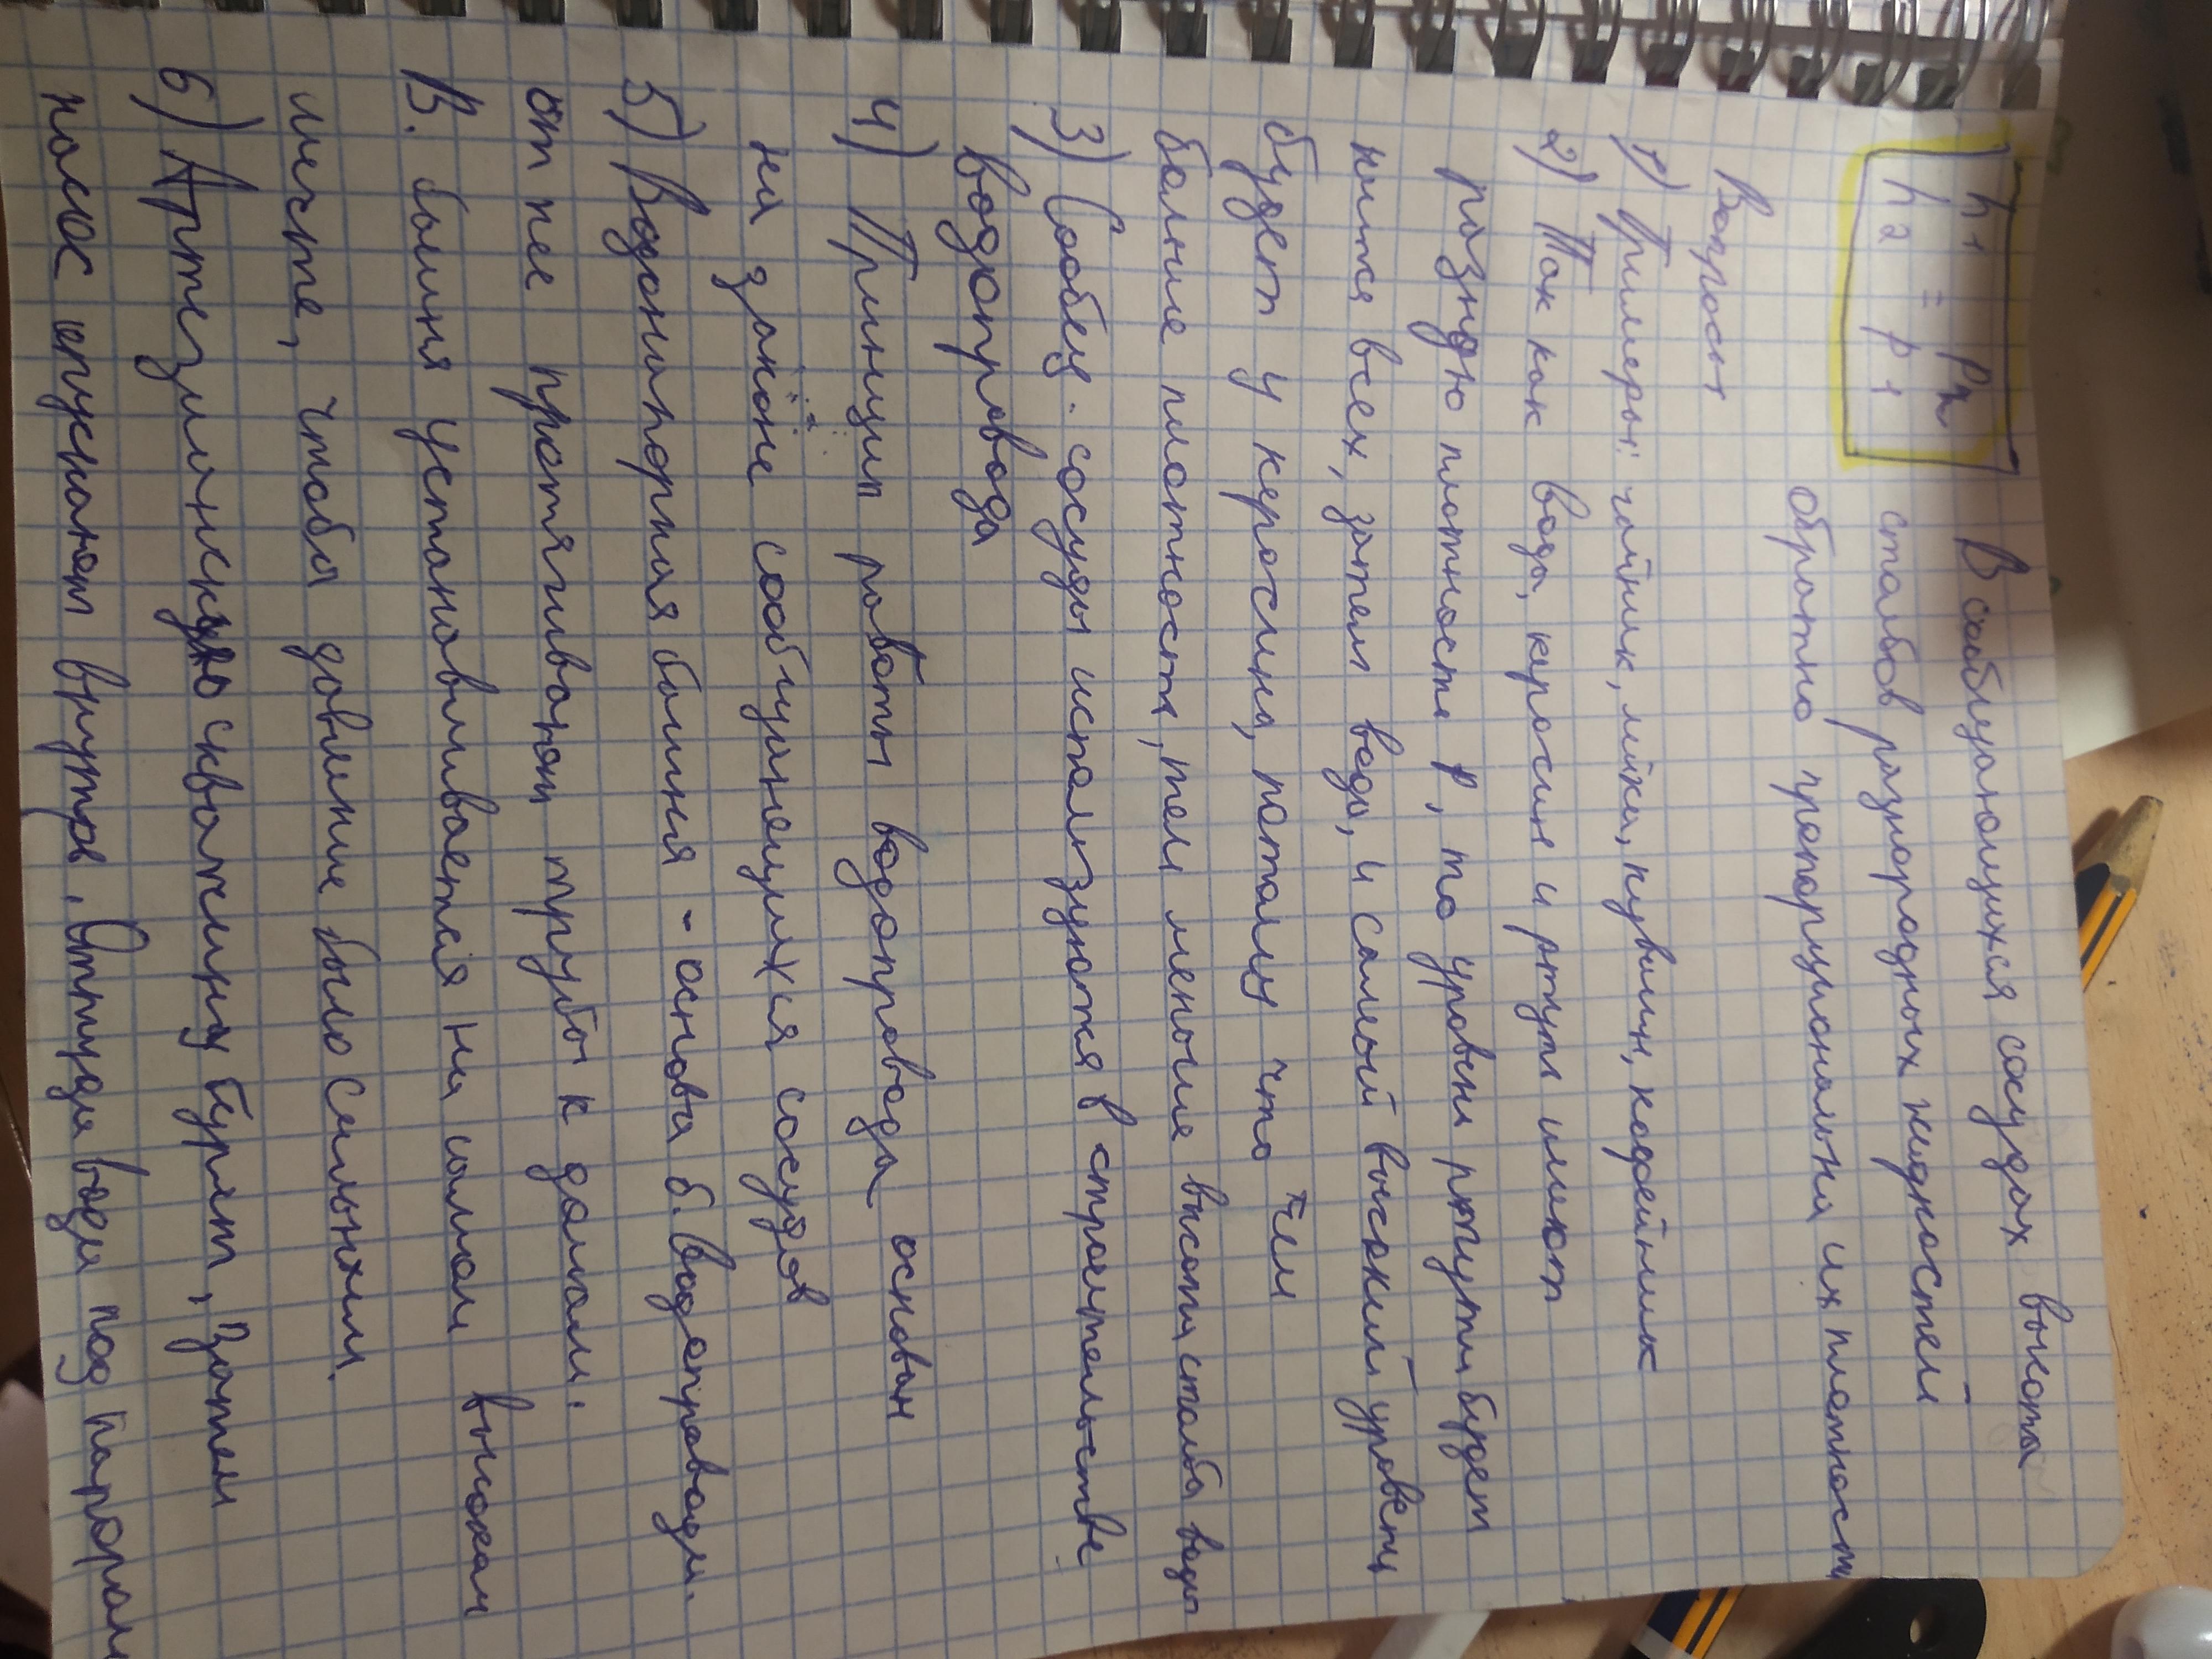 h1 = p2
h2   p1
В сообщающихся сосудах высота
столбов разнородных жидкостей
обратно пропорциональна их плотность
Вопросы
1) Примеры: чайник, лейка, кувшин, кофейник
2) Так как вода, керосин и ртуть имеют
разную плотность p, то уровень ртути будет
ниже всех, затем вода, и самый высокий уровень
будет у керосина, потому что чем
больше плотность, тем меньше высота столба воды
3) Сообщ. сосуды используются в строительстве
водопровода
4) Принцип работы водопровода основан
на законе сообщающихся сосудов
5) Водонапорная башня - основа б. водопровода.
от нее протягивают трубы к домам.
В. башня устанавливается на самом высоком
месте, чтобы давление было сильным.
6) Артезианскую скважину бурят, Затем
насос опускают внутрь. Оттуда вода под напором